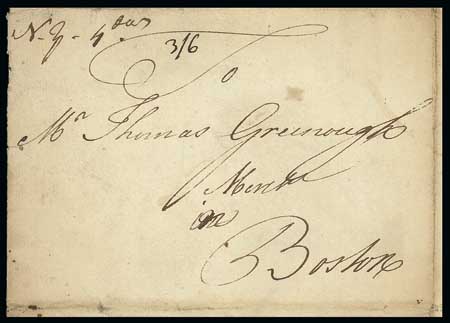 N-Y - 4 dw
3/6
To
Mr Thomas Greenough
Mercht
in
Boston